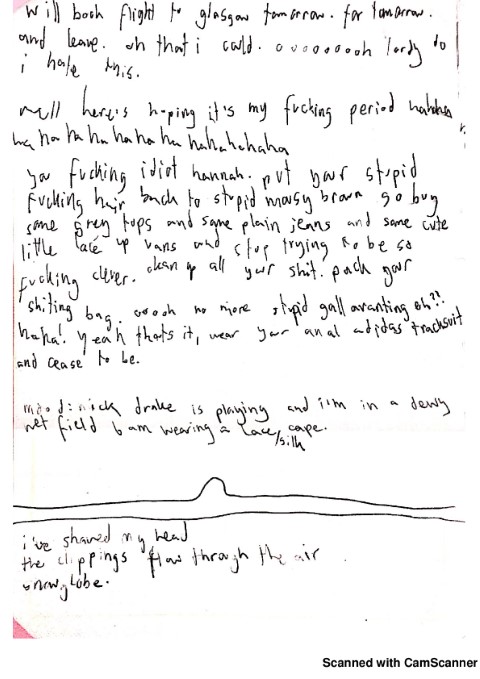 will book flight to glasgow tomorrow. for tomorrow.
and leave. oh that i could. oooooooooh lordy do
i hate this.
well here's hoping it's my fucking period hahaha
ha ha ha ha ha ha ha hahahahaha
you fucking idiot hannah. put your stupid
fucking hair back to stupid mousy brown go buy
some grey tops and some plain jeans and some cute
little lace up vans and stop trying to be so
fucking clever. clean up all your shit. pack your
shitting bag. ooooh no more stupid gallavanting eh??
haha! yeah thats it, wear your anal adidas tracksuit
and cease to be.
nick drake is playing and i'm in a dewy
wet field 6am wearing a lace/silk cape.
i've shaved my head
the clippings flow through the air
snowglobe.
Scanned with CamScanner